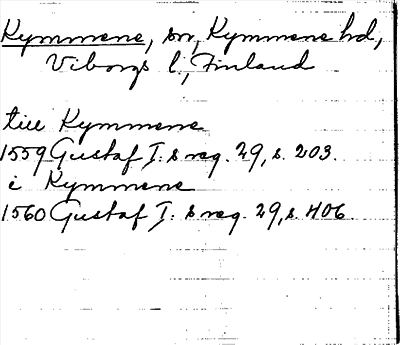 Kymmene, sn, Kymmene hd,
Viborgs l, Finland
till Kymmene
1559 Gustaf I:s reg. 29, s. 203.
i Kymmene
1560 Gustaf I:s reg. 29, s. 406.